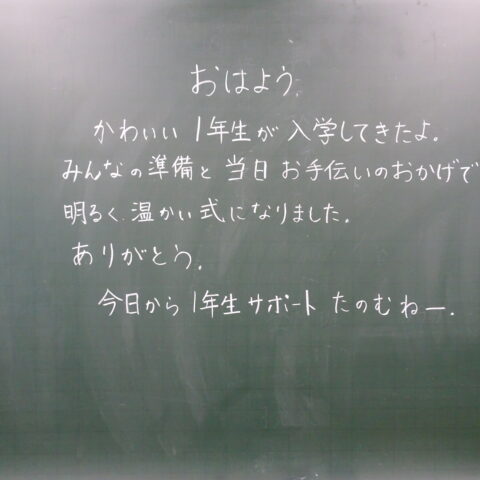 おはよう。
かわいい 1年生が 入学してきたよ。
みんなの準備と 当日 お手伝いのおかげで
明るく 温かい式になりました。
ありがとう。
今日から 1年生サポート たのむねー.